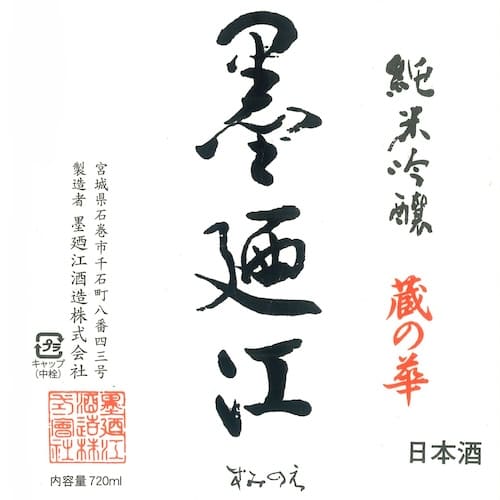 純米吟醸
蔵の華
日本酒
墨廼江
すみのえ
宮城県石巻市千石町八番四三号
製造者 墨廼江酒造株式会社
プラ
キャップ
(中栓)
墨廼江
酒造株
式會社
内容量720ml